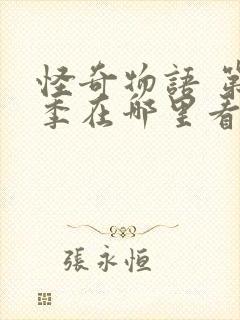 怪奇物語 第
季在哪里看
張永恒